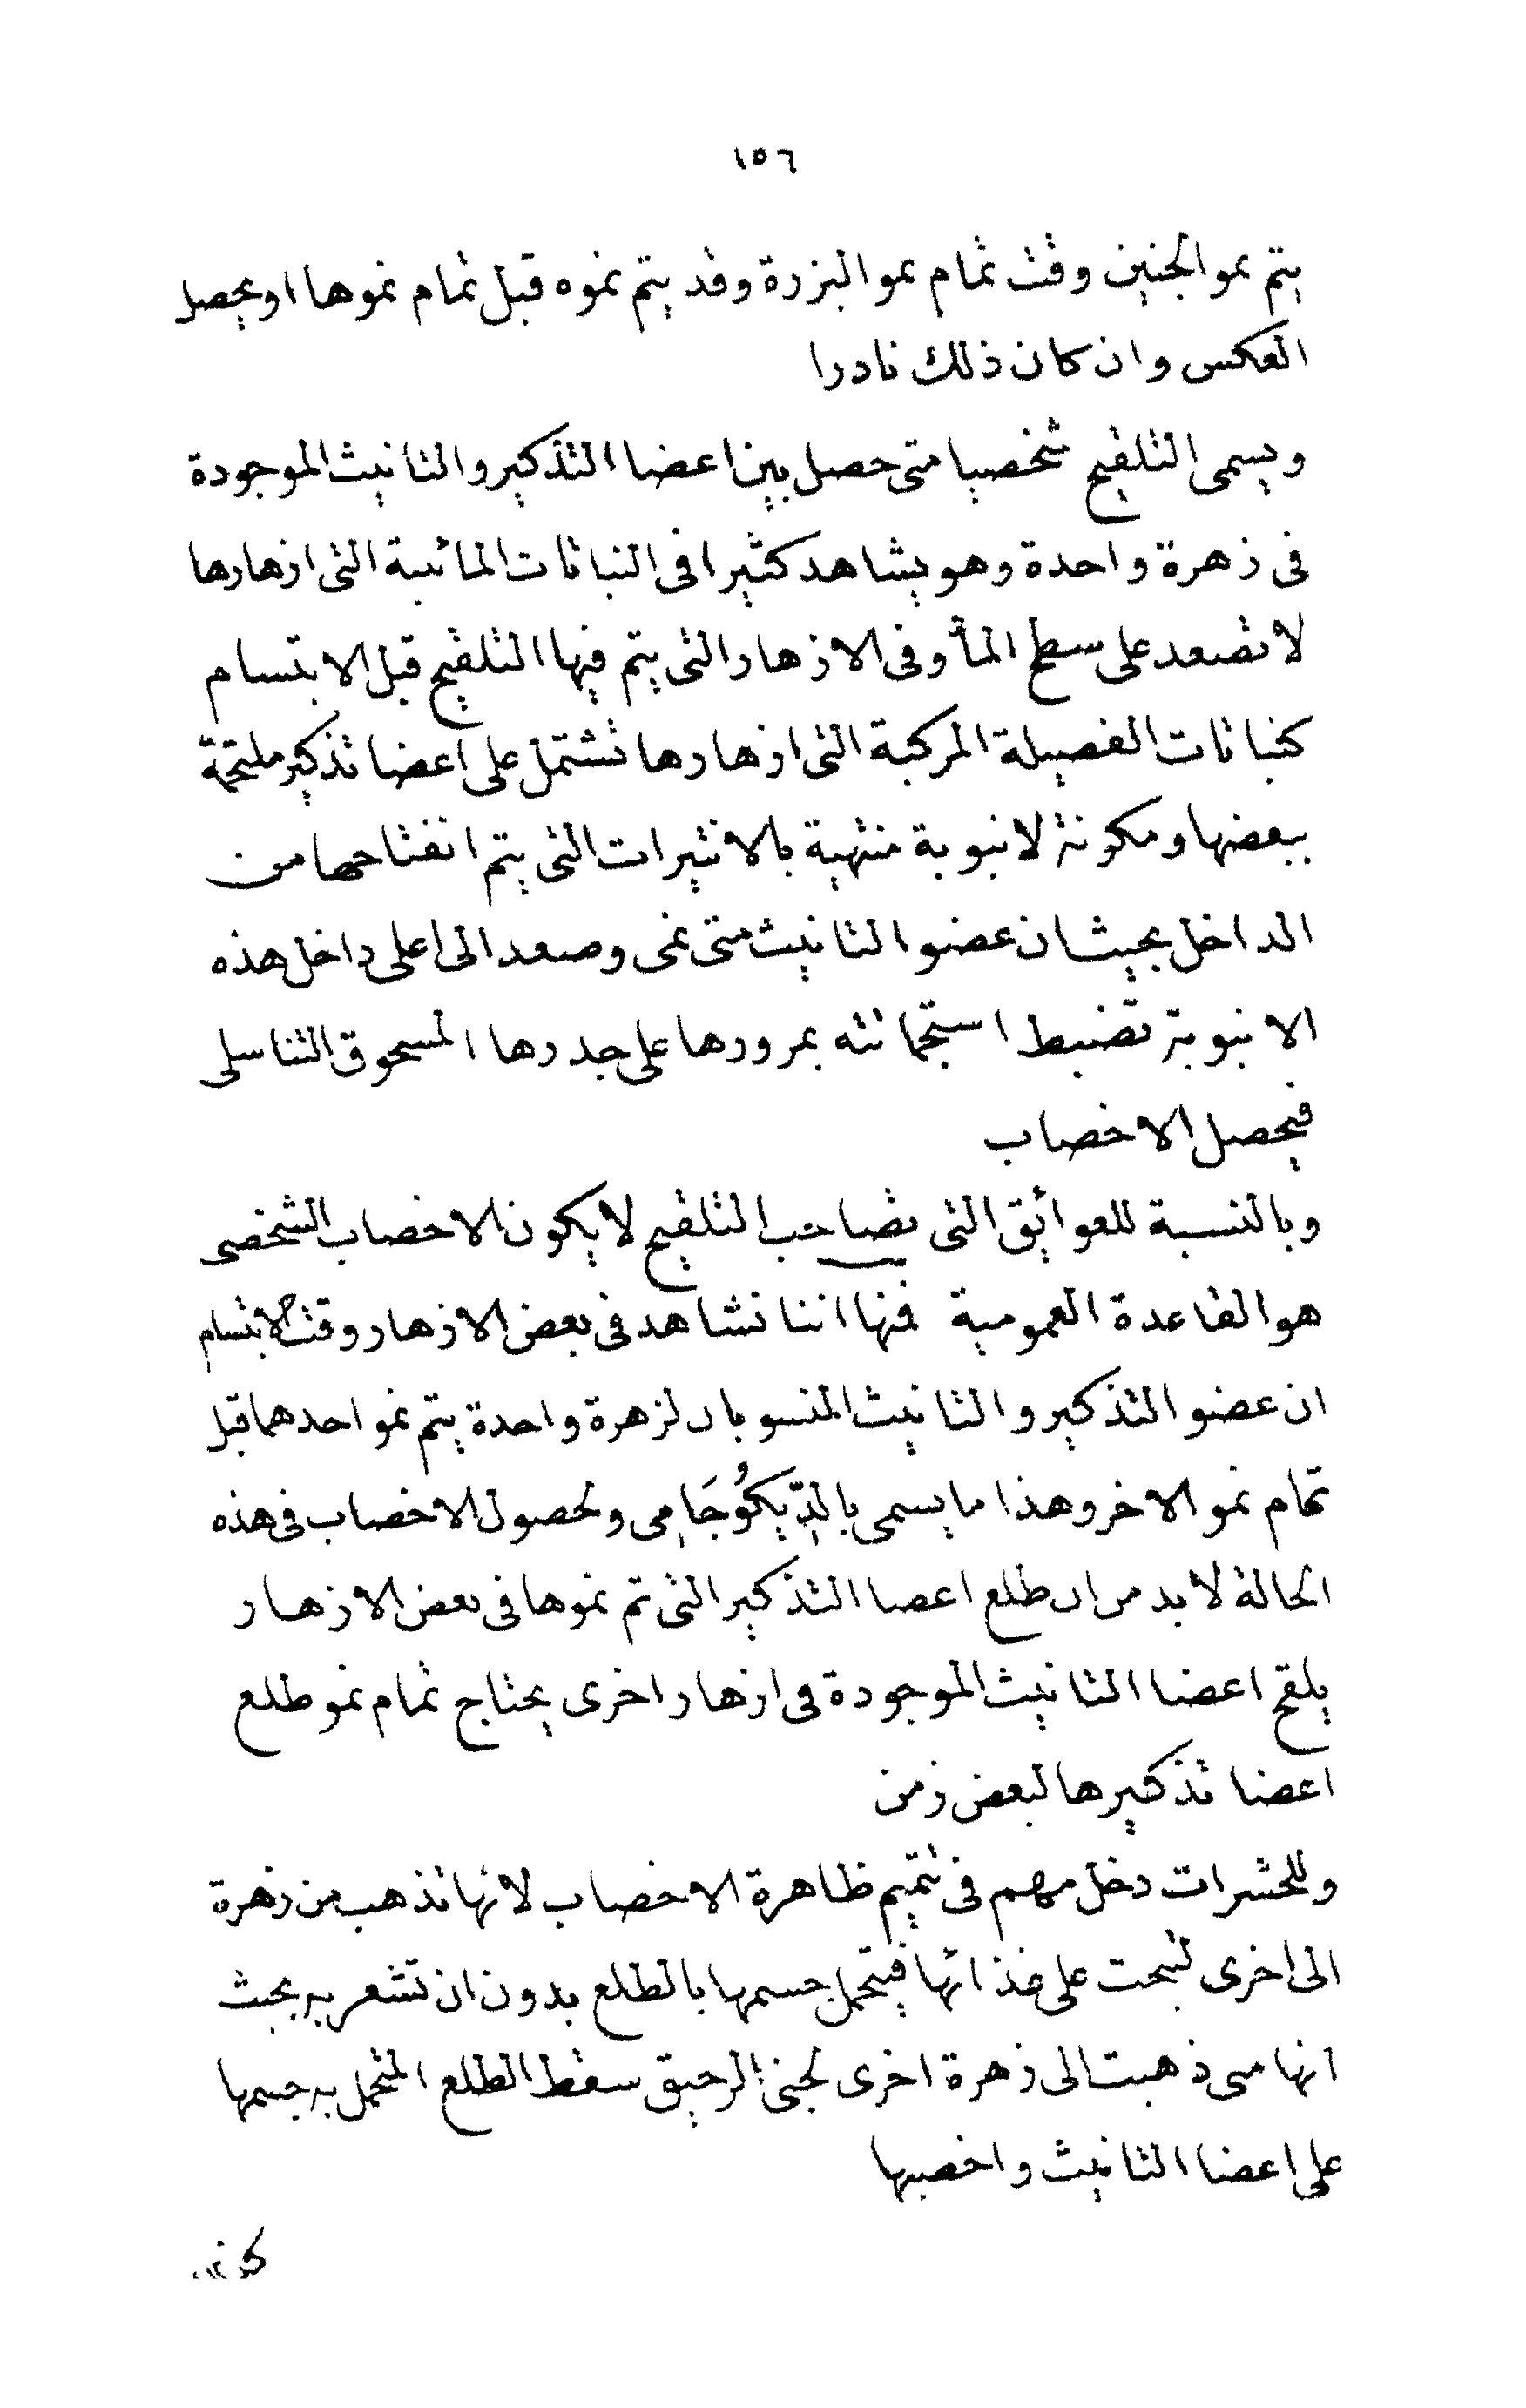 ١٥٦
يتم نمو الجنين وقت تمام نمو البزرة وقد يتم نموه قبل تمام نموها او يحصل
العكس وان كان ذلك نادرا
ويسمى التلقيح شخصيا متى حصل بين اعضا التذكير والتانيث الموجودة
فى زهرة واحدة وهو يشاهد كثيرا فى النباتات المائية التى ازهارها
لا تصعد على سطح المأ وفى الازهار التى يتم فيها التلقيح قبل الابتسام
كنباتات الفصيلة المركبة التى ازهارها تشتمل على اعضا تذكير ملتحمة
ببعضها ومكونة لانبوبة منتهية بالانتيرات التى يتم انفتاحها من
الداخل بحيث ان عضو التانيث متى نمى وصعد الى اعلى داخل هذه
الانبوبة تضبط استجماتته بمرورها على جدرها المسحوق التناسلى
فيحصل الاخصاب
وبالنسبة للعوائق التى تصاحب التلقيح لا يكون الاخصاب الشخصى
هو القاعدة العمومية فمنها اننا نشاهد فى بعض الازهار وقت الابتسام
ان عضو التذكير والتانيث المنسوبان لزهرة واحدة يتم نمو احدهما قبل
تمام نمو الاخر وهذا ما يسمى بالدِّيكُوجَامِى ولحصول الاخصاب فى هذه
الحالة لابد من ان طلع اعضا التذكير التى تم نموها فى بعض الازهار
يلقح اعضا التانيث الموجودة فى ازهار اخرى يحتاج تمام نمو طلع
اعضا تذكيرها لبعض زمن
وللحشرات دخل مهم فى تتميم ظاهرة الاخصاب لانها تذهب من زهرة
الى اخرى لتبحت على غذائها فيتحمل جسمها بالطلع بدون ان تشعر به بحيث
انها متى ذهبت الى زهرة اخرى لجنى الرحيق سقط الطلع المتحمل به جسمها
على اعضا التانيث واخصبها